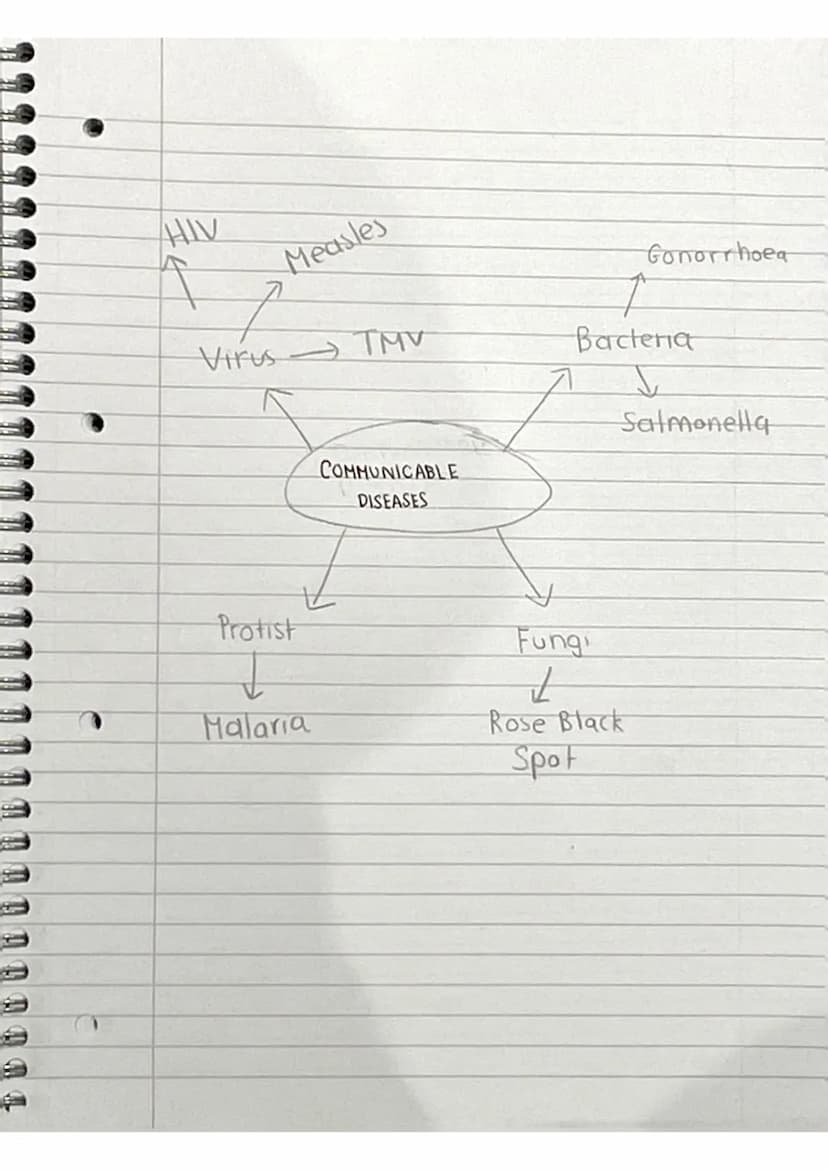 HIV
Measles
Gonorrhoea
Virus
TMV
Bacteria
Salmonella
COMMUNICABLE
DISEASES
Protist
Fungi
Malaria
Rose Black
Spot